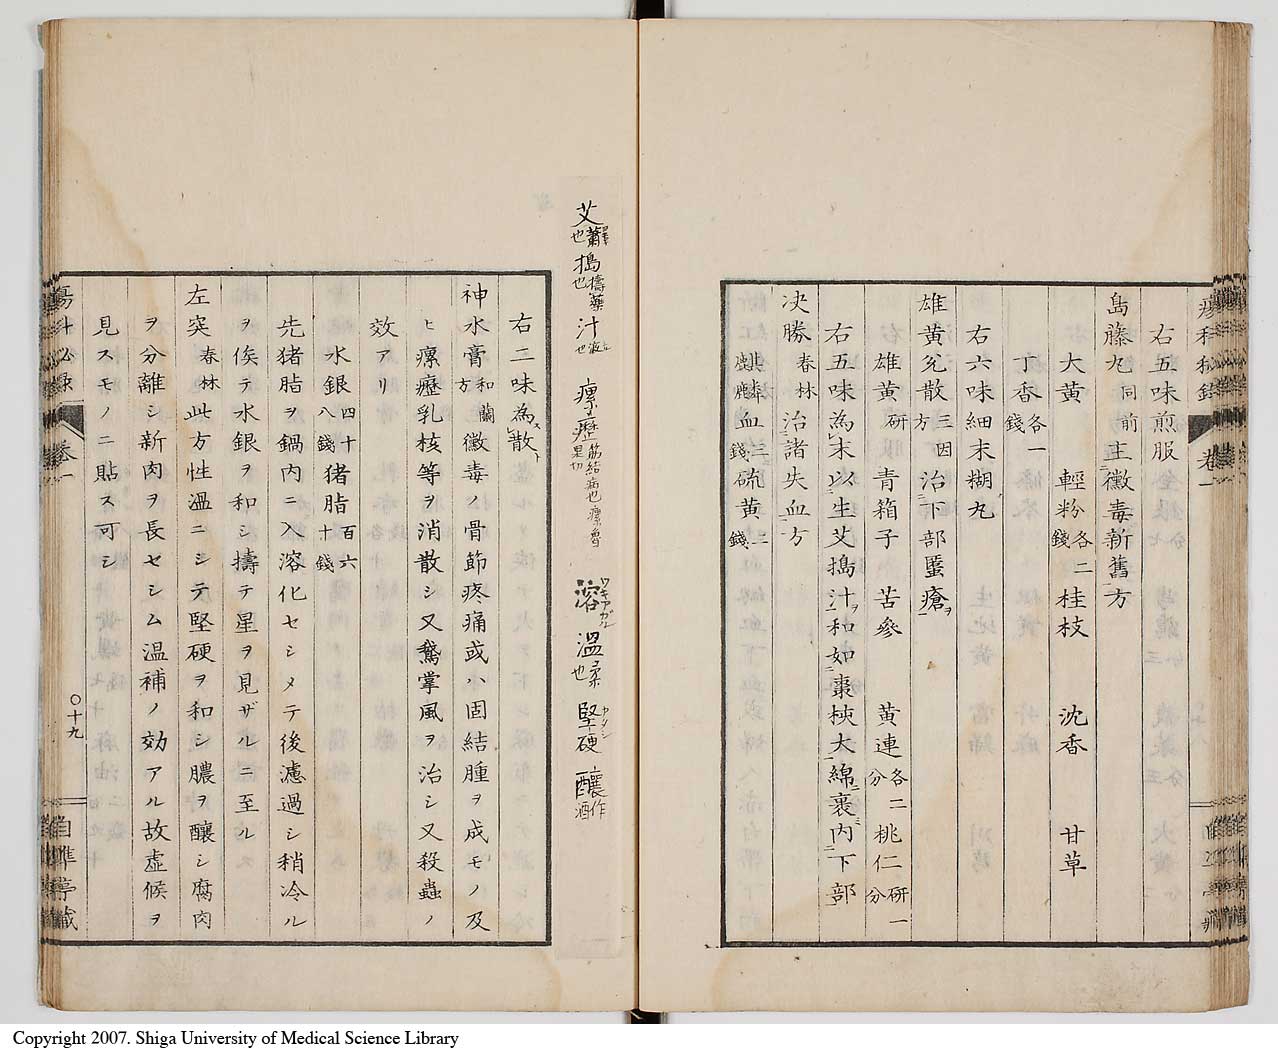 右五味煎服
島藤丸 同前 主黴毒新舊方
大黄 輕粉 各二錢 桂枝 沈香 甘草
丁香 各一錢
右六味細末糊丸
雄黄兊散 三因方 治下部䘌瘡ヲ
雄黄 研 青箱子 苦參 黄連 各二分 桃仁 研一分
右五味為末以生艾搗汁和如棗梜大綿裹内下部
决勝 春林 治諸失血方
麒麟血 三錢 硫黄 二錢
右二味為散
神水膏 和蘭方 黴毒ノ骨節疼痛或ハ固結腫ヲ成モノ及
ヒ瘰癧乳核等ヲ消散シ又鵞掌風ヲ治シ又殺蟲ノ
效アリ
水銀 四十八錢 猪脂 百六十錢
先猪脂ヲ鍋内ニ入溶化セシメテ後濾過シ稍冷ル
ヲ俟テ水銀ヲ和シ擣テ星ヲ見ザルニ至ル
左突 春林 此方性温ニシテ堅硬ヲ和シ膿ヲ釀シ腐肉
ヲ分離シ新肉ヲ長セシム温補ノ効アル故虚候ヲ
見スモノニ貼ス可シ
艾 蕭也 搗 擣藥也 汁 液也 瘰癧 筋結病也 溶 温 柔也 堅硬 カタシ 釀 作酒
瘍科秘録 卷一
〇十九
自準亭藏
Copyright 2007. Shiga University of Medical Science Library